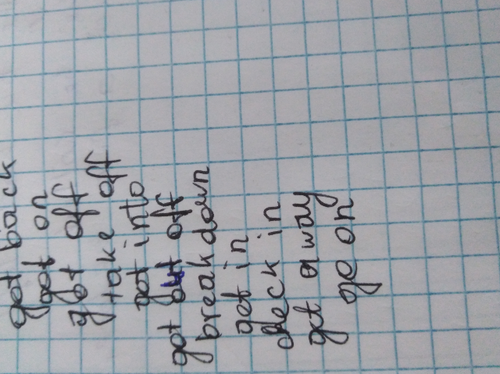 got back
get on
got off
take off
got into
got out off
breakdown
get in
check in
get away
go on